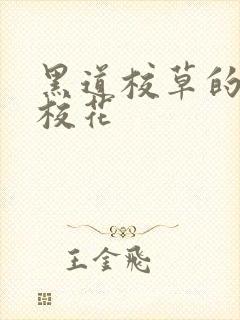 黑道校草的
校花
王金飛